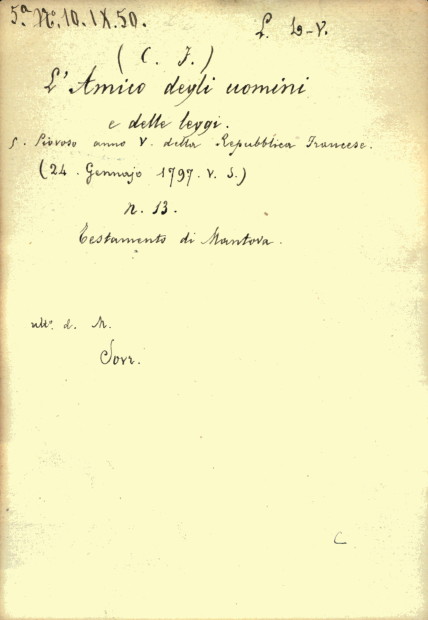 5ª Nº. 10. IX. 50.
L. 19-V.
(C. F.)
L'Amico degli uomini
e delle leggi.
5. Piovoso anno V. della Repubblica Francese.
(24. Gennajo 1797. v. S.)
n. 13.
Testamento di Mantova.
d. M.
C